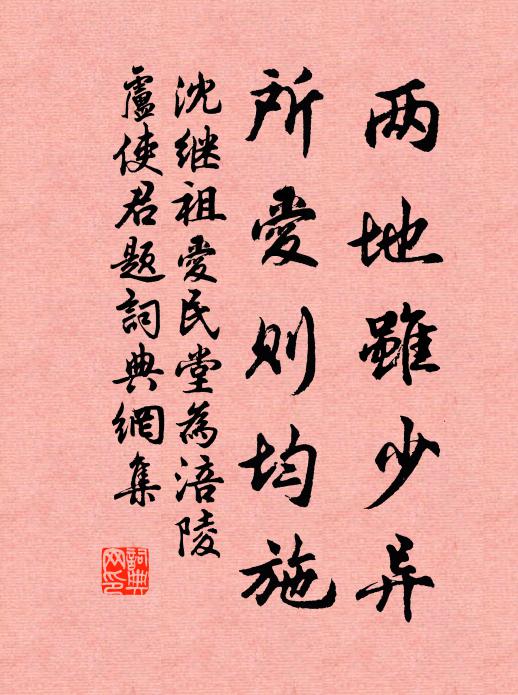 两地虽少异
所爱则均施
沈继祖爱民堂为涪陵
卢使君题词典网集
词典网印